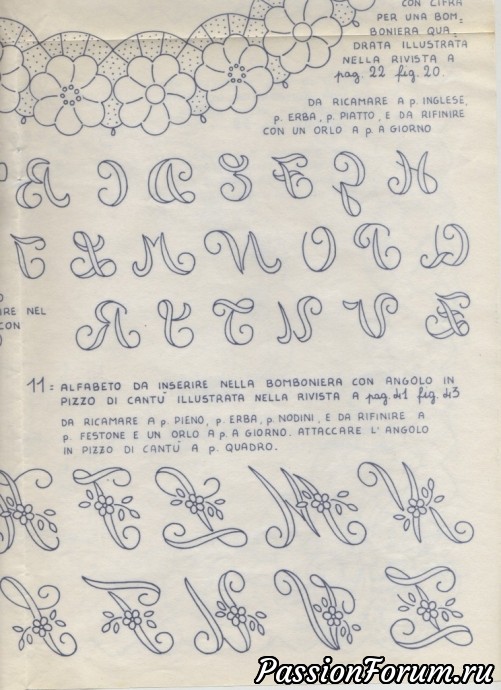 CON CIFRA
PER UNA BOM=
BONIERA QUA=
DRATA ILLUSTRATA
NELLA RIVISTA A
pag. 22 fig. 20.
DA RICAMARE A p. INGLESE,
p. ERBA, p. PIATTO, E DA RIFINIRE
CON UN ORLO A p. A GIORNO
RE NEL
CON
11: ALFABETO DA INSERIRE NELLA BOMBONIERA CON ANGOLO IN
PIZZO DI CANTU' ILLUSTRATA NELLA RIVISTA A pag. 41 fig. 43
DA RICAMARE A p. PIENO, p. ERBA, p. NODINI, E DA RIFINIRE A
p. FESTONE E UN ORLO A p. A GIORNO. ATTACCARE L'ANGOLO
IN PIZZO DI CANTU' A p. QUADRO.
PassionForum.ru